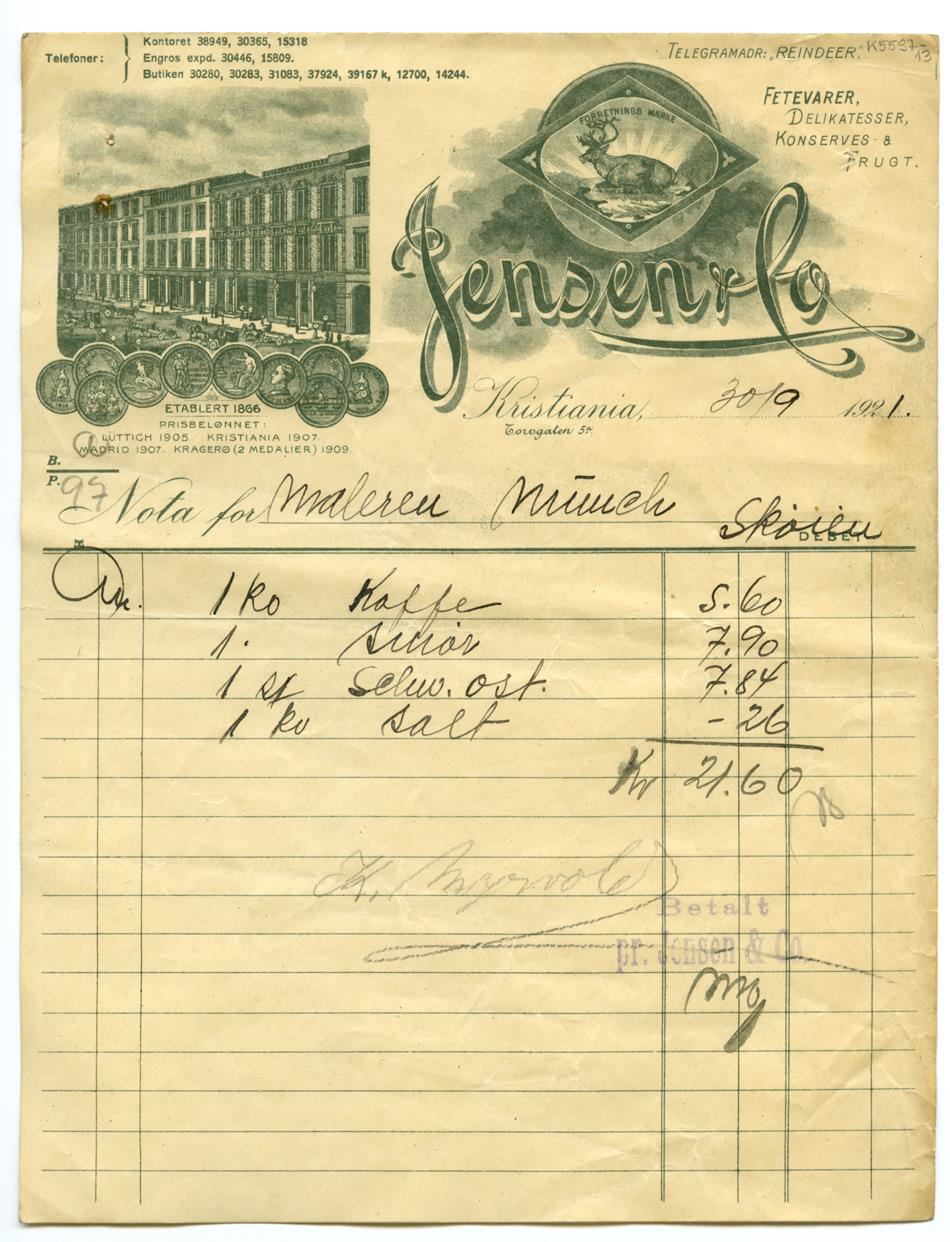 Telefoner:
Kontoret 38949, 30365, 15318
Engros expd. 30446, 15809.
Butiken 30280, 30283, 31083, 37924, 39167 k, 12700, 14244.
TELEGRAMADR: „REINDEER"
K5597-13
FETEVARER,
DELIKATESSER,
KONSERVES- &
FRUGT.
FORRETNINGS MÆRKE
Jensen & Co
ETABLERT 1866
PRISBELØNNET:
LÜTTICH 1905. KRISTIANIA 1907.
MADRID 1907. KRAGERØ (2 MEDALIER) 1909.
Kristiania, 30/9 1921.
Torvgaten 5a.
B.
P. 97
Nota for Maleren Münch
Skøien
DEBET
1 ko Kaffe 5.60
1. smør 7.90
1 st Schw. ost. 7.84
1 ko salt - 26
Kr 21.60
Betalt
pr. Jensen & Co.